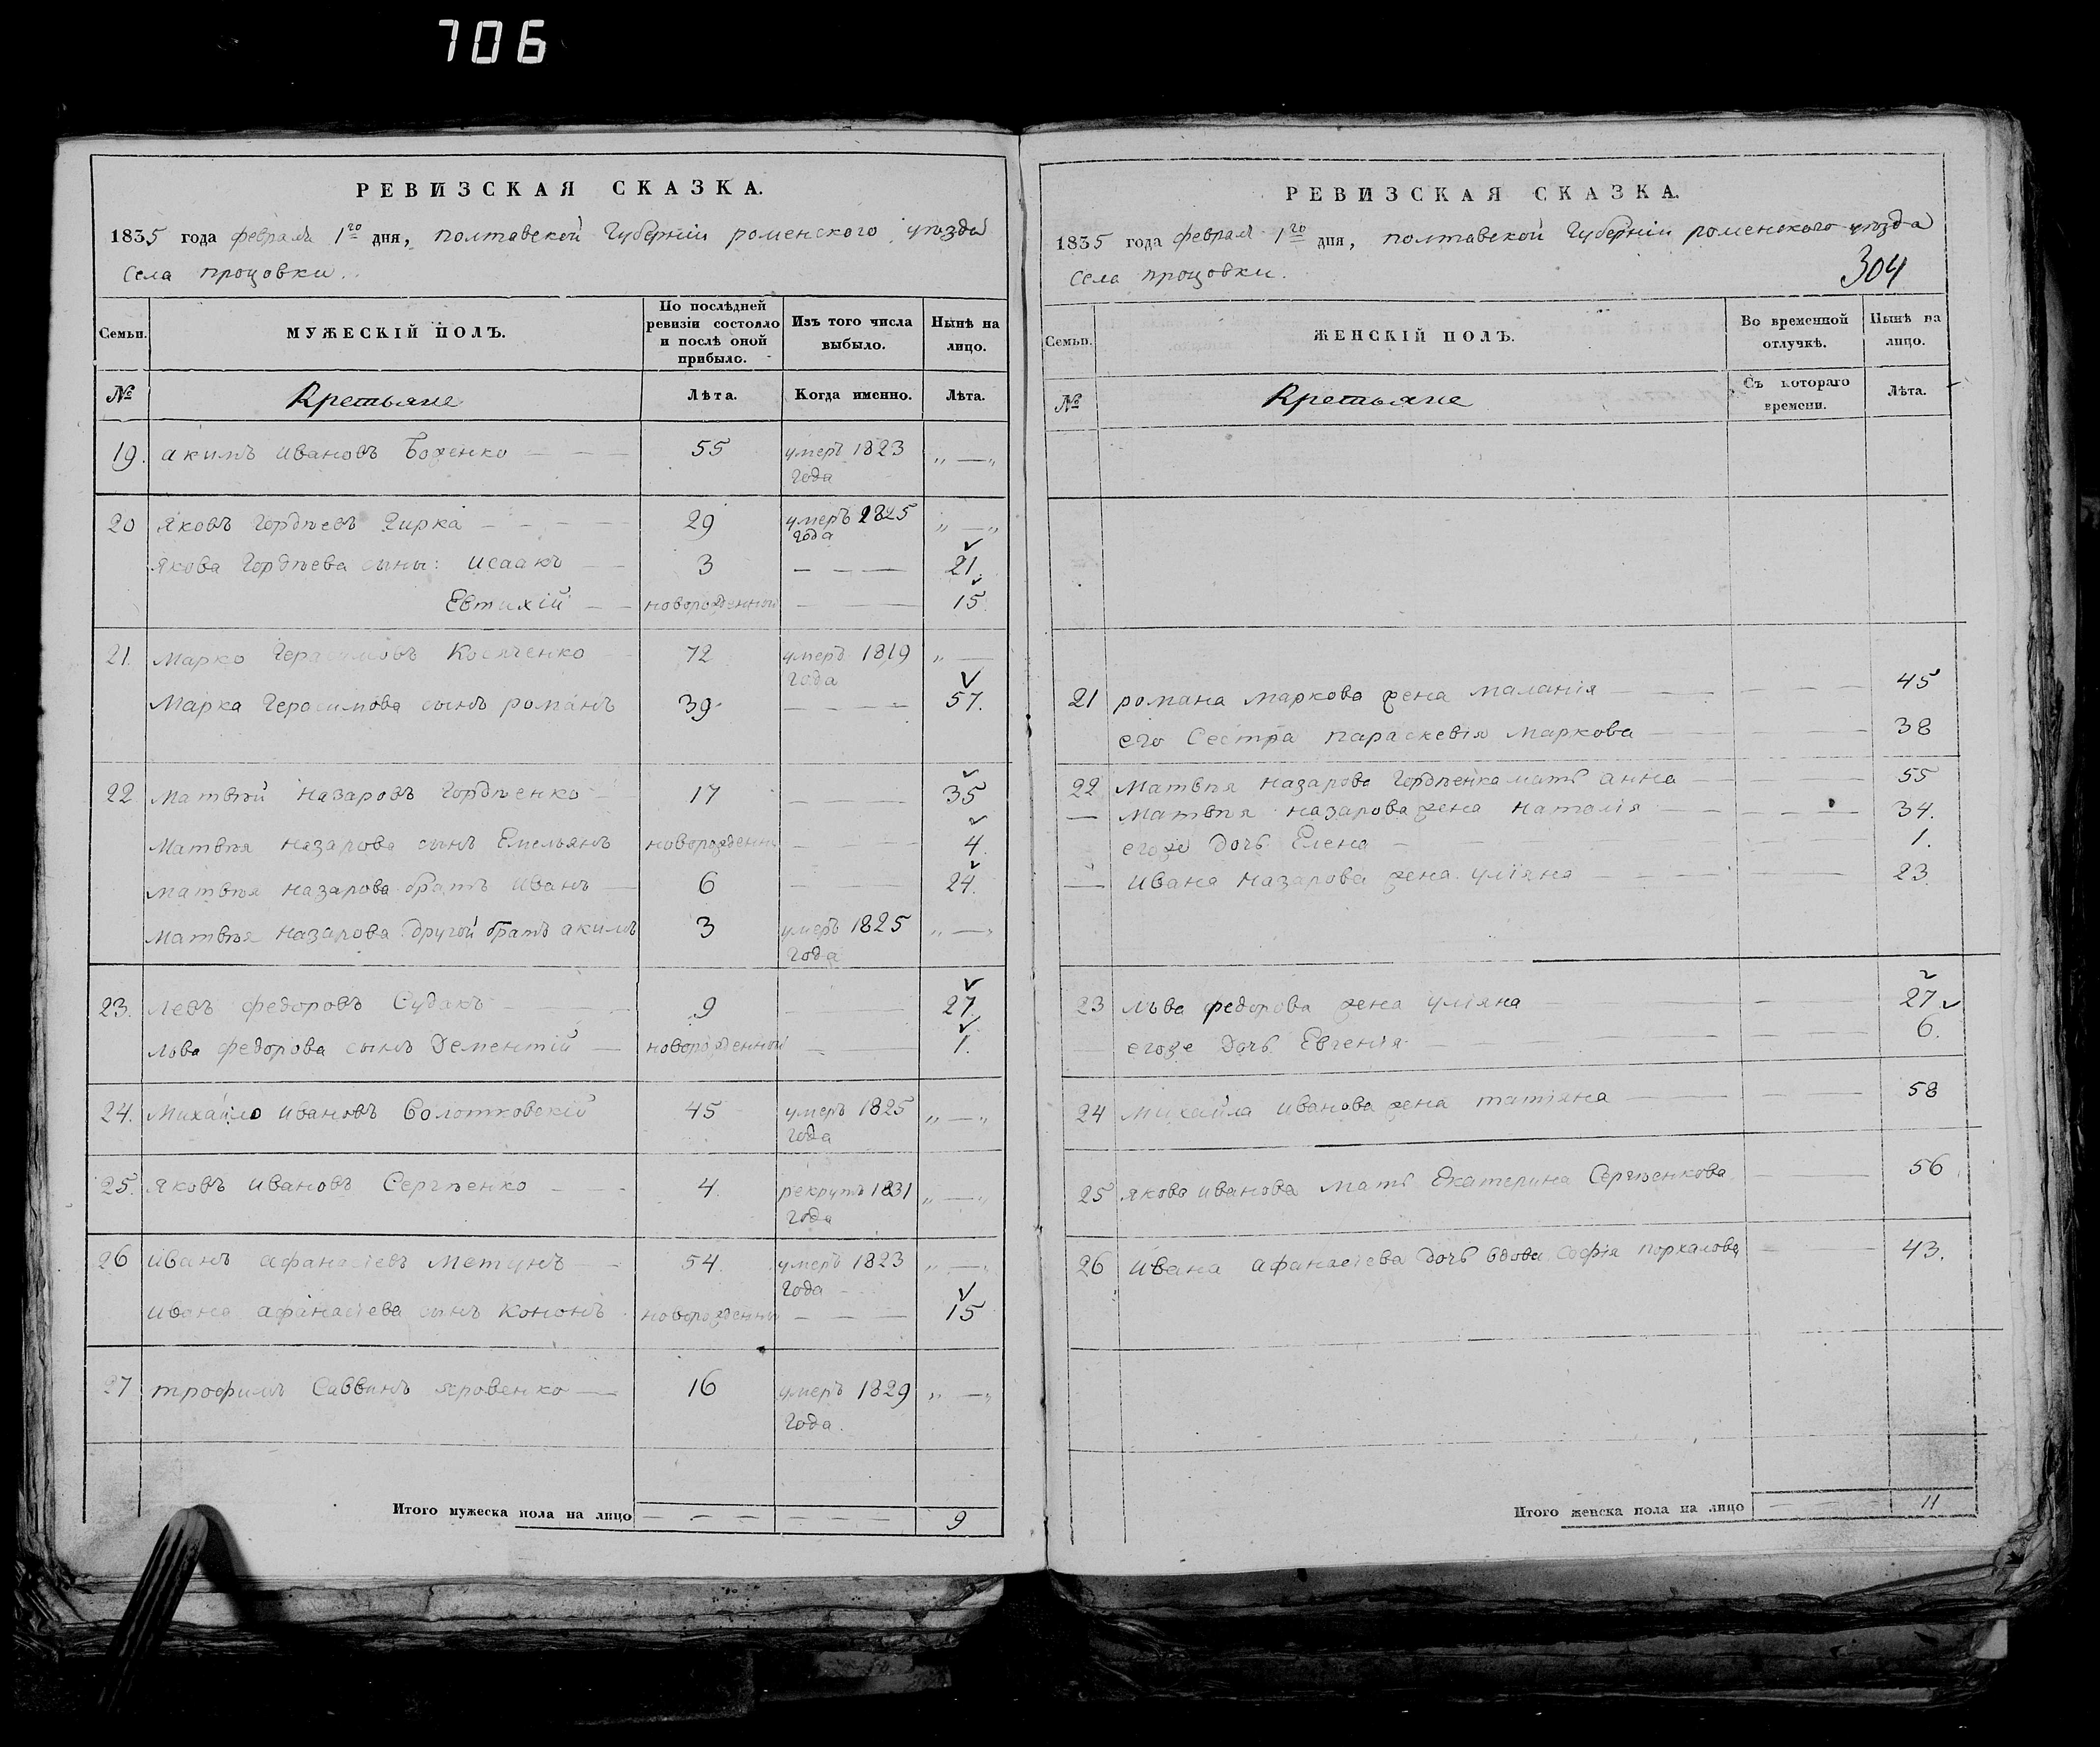 706
РЕВИЗСКАЯ СКАЗКА.
1835 года февраля 1го дня, полтавской Губерніи роменского уѣзда
Села процовки.
Семьи. МУЖЕСКІЙ ПОЛЪ. По послѣдней ревизіи состояло и послѣ оной прибыло. Изъ того числа выбыло. Нынѣ на лицо.
№ Крестьяне Лѣта. Когда именно. Лѣта.
19. акимъ ивановъ Боженко — — — 55 умеръ 1823 года „ — „
20 яковъ Гордѣевъ Чирка — — — — 29 умеръ 1825 года „ — „
якова Гордѣева сыны: исаакъ — — 3 — — — 21.
Евтихій — — новорожденный — — — 15.
21. Марко Герасимовъ 72 умеръ 1819 года „ —
Марка Герасимова сынъ романъ 39 — — — — 57.
22 Матвѣй назаровъ Гордѣенко — 17 — — — 35
Матвѣя назарова сынъ Емельянъ новорожденны — — — — 4.
Матвѣя назарова братъ иванъ — 6 — — — 24.
Матвѣя назарова другой братъ акимъ 3 умеръ 1825 года „ — „
23. левъ федоровъ Судакъ — — — 9 — — — 27.
лва федорова сынъ Дементій — новорожденный — — 1.
24. Михайло ивановъ Солотковскій 45 умеръ 1825 года „ — „
25. яковъ ивановъ Сергѣенко — — 4. рекрутъ 1831 года „ — „
26 иванъ афанасіевъ Метунъ — — 54. умеръ 1823 года „ — „
ивана афанасіева сынъ кононъ новорожденны — — — 15
27 трофимъ Саввинъ яровенко — 16 умеръ 1829 года. „ — „
Итого мужеска пола на лицо — — — — — — 9
РЕВИЗСКАЯ СКАЗКА.
1835 года феврал 1го дня, полтавской Губерніи роменского уѣзда
села процовки.
304
Семьи. ЖЕНСКІЙ ПОЛЪ. Во временной отлучкѣ. Нынѣ на лицо.
№ Крестьяне Съ котораго времени. Лѣта.
21 романа маркова жена маланія — — — — — — 45
его Сестра параскевія маркова — — — — 38
22 Матвѣя назарова Гордѣенка мать анна — — — 55
— матвѣя назарова жена наталія — — — — — 34.
егоже дочь Елена — — — — 1.
— ивана назарова жена уліяна — — — — 23.
23 льва федорова жена уліяна — — — 27
— егоже дочь Евгенія — — — — — 6.
24 михайла иванова жена татіяна — — — — 58
25 якова иванова мать Екатерина Сергѣенкова — — 56
26 ивана афанасіева дочь вдова софія — — 43.
Итого женска пола на лицо — — — 11